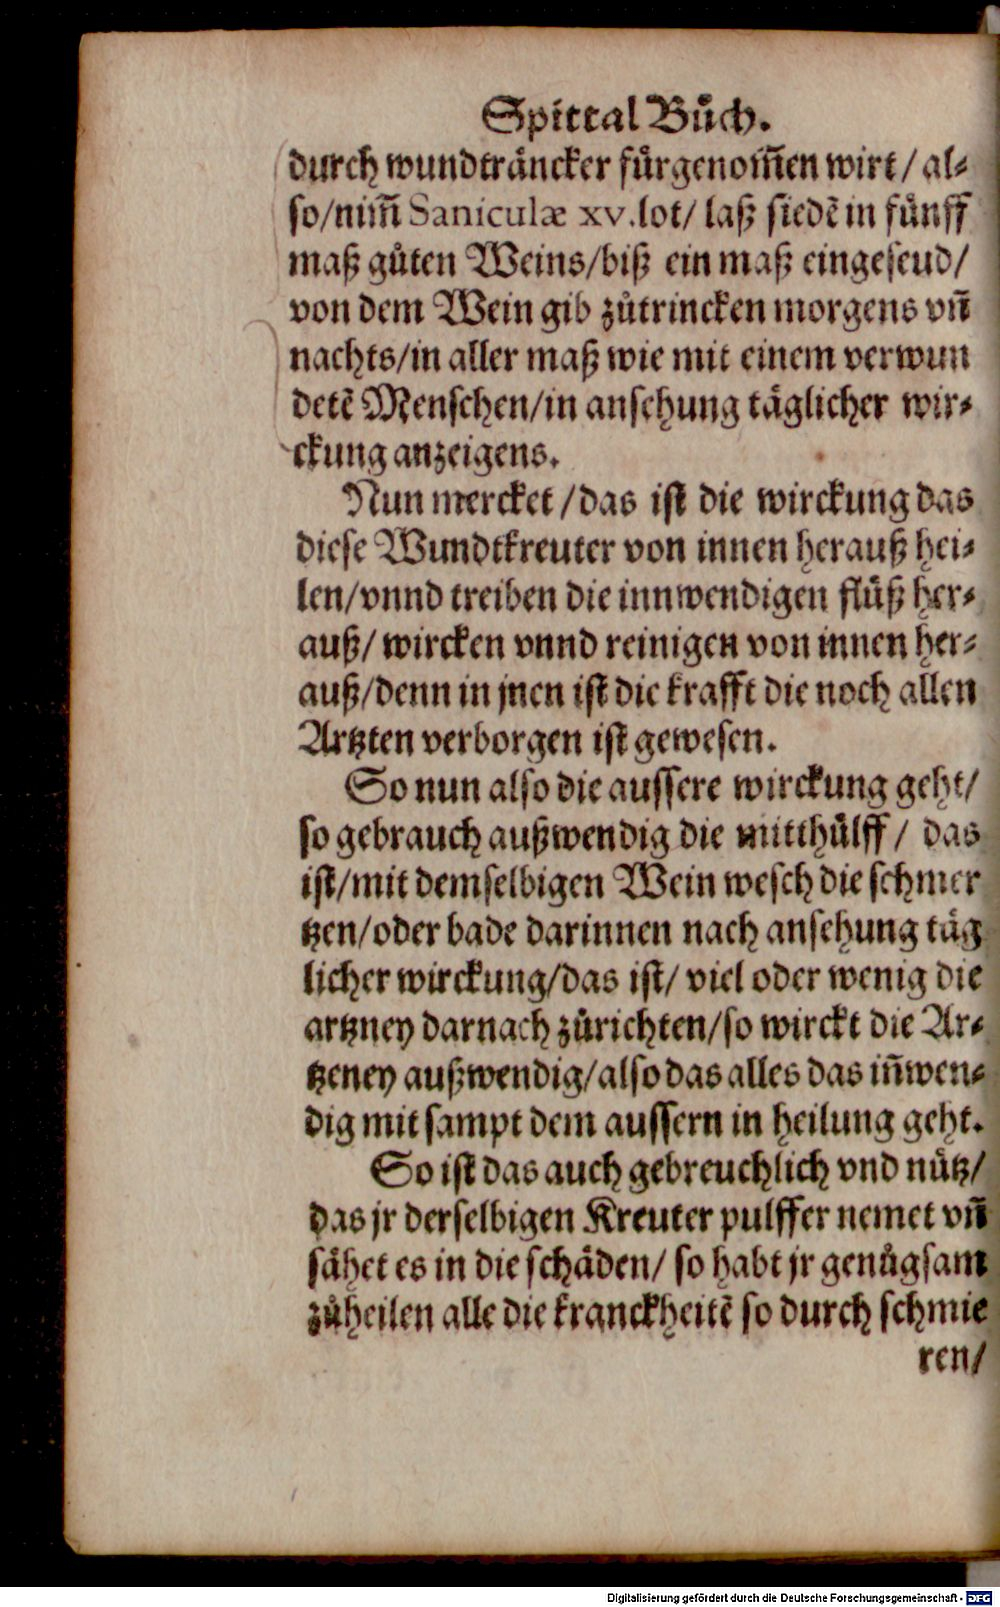 Spittal Bůch.
durch wundträncker fürgenom̃en wirt / al⸗
so/nim̃ Saniculæ xv.lot/ laß siedẽ in fünff
maß gůten Weins/biß ein maß eingeseud/
von dem Wein gib zůtrincken morgens vñ
nachts/in aller maß wie mit einem verwun
detẽ Menschen/in ansehung täglicher wir⸗
ckung anzeigens.
Nun mercket /das ist die wirckung das
diese Wundtkreuter von innen herauß hei⸗
len/vnnd treiben die innwendigen flüß her⸗
auß/ wircken vnnd reinigen von innen her⸗
auß/denn in jnen ist die krafft die noch allen
Artzten verborgen ist gewesen.
So nun also die aussere wirckung geht/
so gebrauch außwendig die mitthülff / das
ist/mit demselbigen Wein wesch die schmer
tzen/oder bade darinnen nach ansehung täg
licher wirckung/das ist/ viel oder wenig die
artzney darnach zůrichten/so wirckt die Ar⸗
tzeney außwendig/also das alles das iñwen⸗
dig mit sampt dem aussern in heilung geht.
So ist das auch gebreuchlich vnd nütz/
das jr derselbigen Kreuter pulffer nemet vñ
sähet es in die schäden/ so habt jr genůgsam
zůheilen alle die kranckheitẽ so durch schmie
ren/
Digitalisierung gefördert durch die Deutsche Forschungsgemeinschaft - DFG